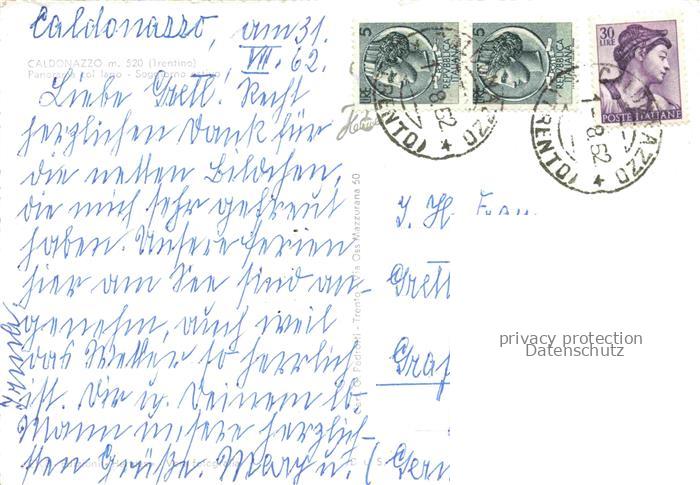 Caldonazzo, am 31.
VII. 62.
CALDONAZZO m. 520 (Trentino)
Panorama col lago - Soggiorno estivo
Liebe Gretl. Recht
herzlichen Dank für
die netten Bildchen,
die mich sehr gefreut
haben. Unsere Ferien
hier am See sind an-
genehm, auch weil
das Wetter so herrlich
ist. Dir u. Deinem lb.
Mann unsere herzlich-
sten Grüße.
5
REPUBBLICA
ITALIANA
5
REPUBBLICA
ITALIANA
30
LIRE
POSTE ITALIANE
(TRENTO)
1-8.62
(TRENTO)
1-8.62
Trento - Via Oss Mazzurana 50
I. H. Frau
Gretl
Graf
privacy protection
Datenschutz